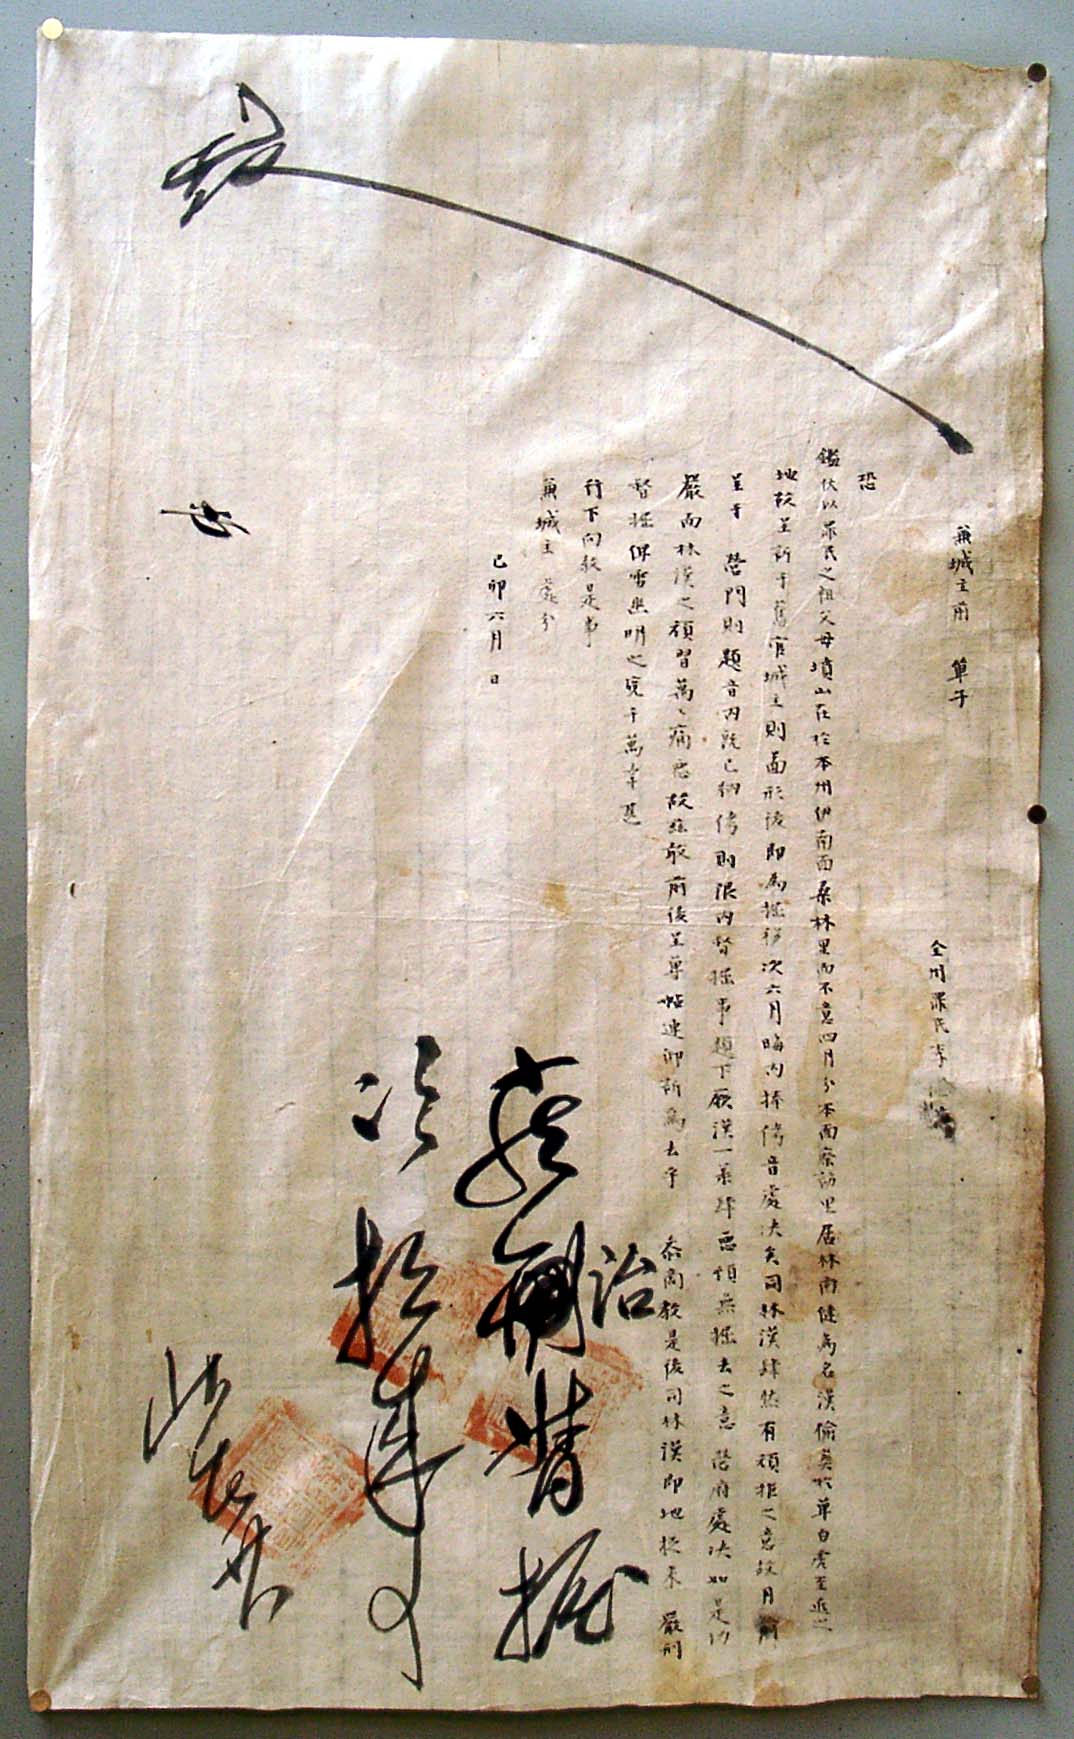 兼城主前 單子
全州罪民李
恐
鑑伏以罪民之祖父母墳山在於本州伊南面桑林里而不意四月分本面察訪里居林南健爲名漢偸葬於單白虎至近之
地故呈訴于舊官城主則圖形後卽爲掘移次六月晦内捧侤音處決矣同林漢肆然有頑拒之意故月前
呈于 營門則題音内既已納侤則限内督掘事題下厥漢一系肆惡頓無掘去之意 營府處決如是
嚴而林漢之頑習萬萬痛惡故玆敢前後呈單帖連仰訴爲去乎 叅商敎是後同林漢卽地捉來 嚴刑
督掘俾雪幽明之寃千萬幸甚
行下向敎是事
兼城主 處分
己卯六月 日
治
督掘
次捉來事